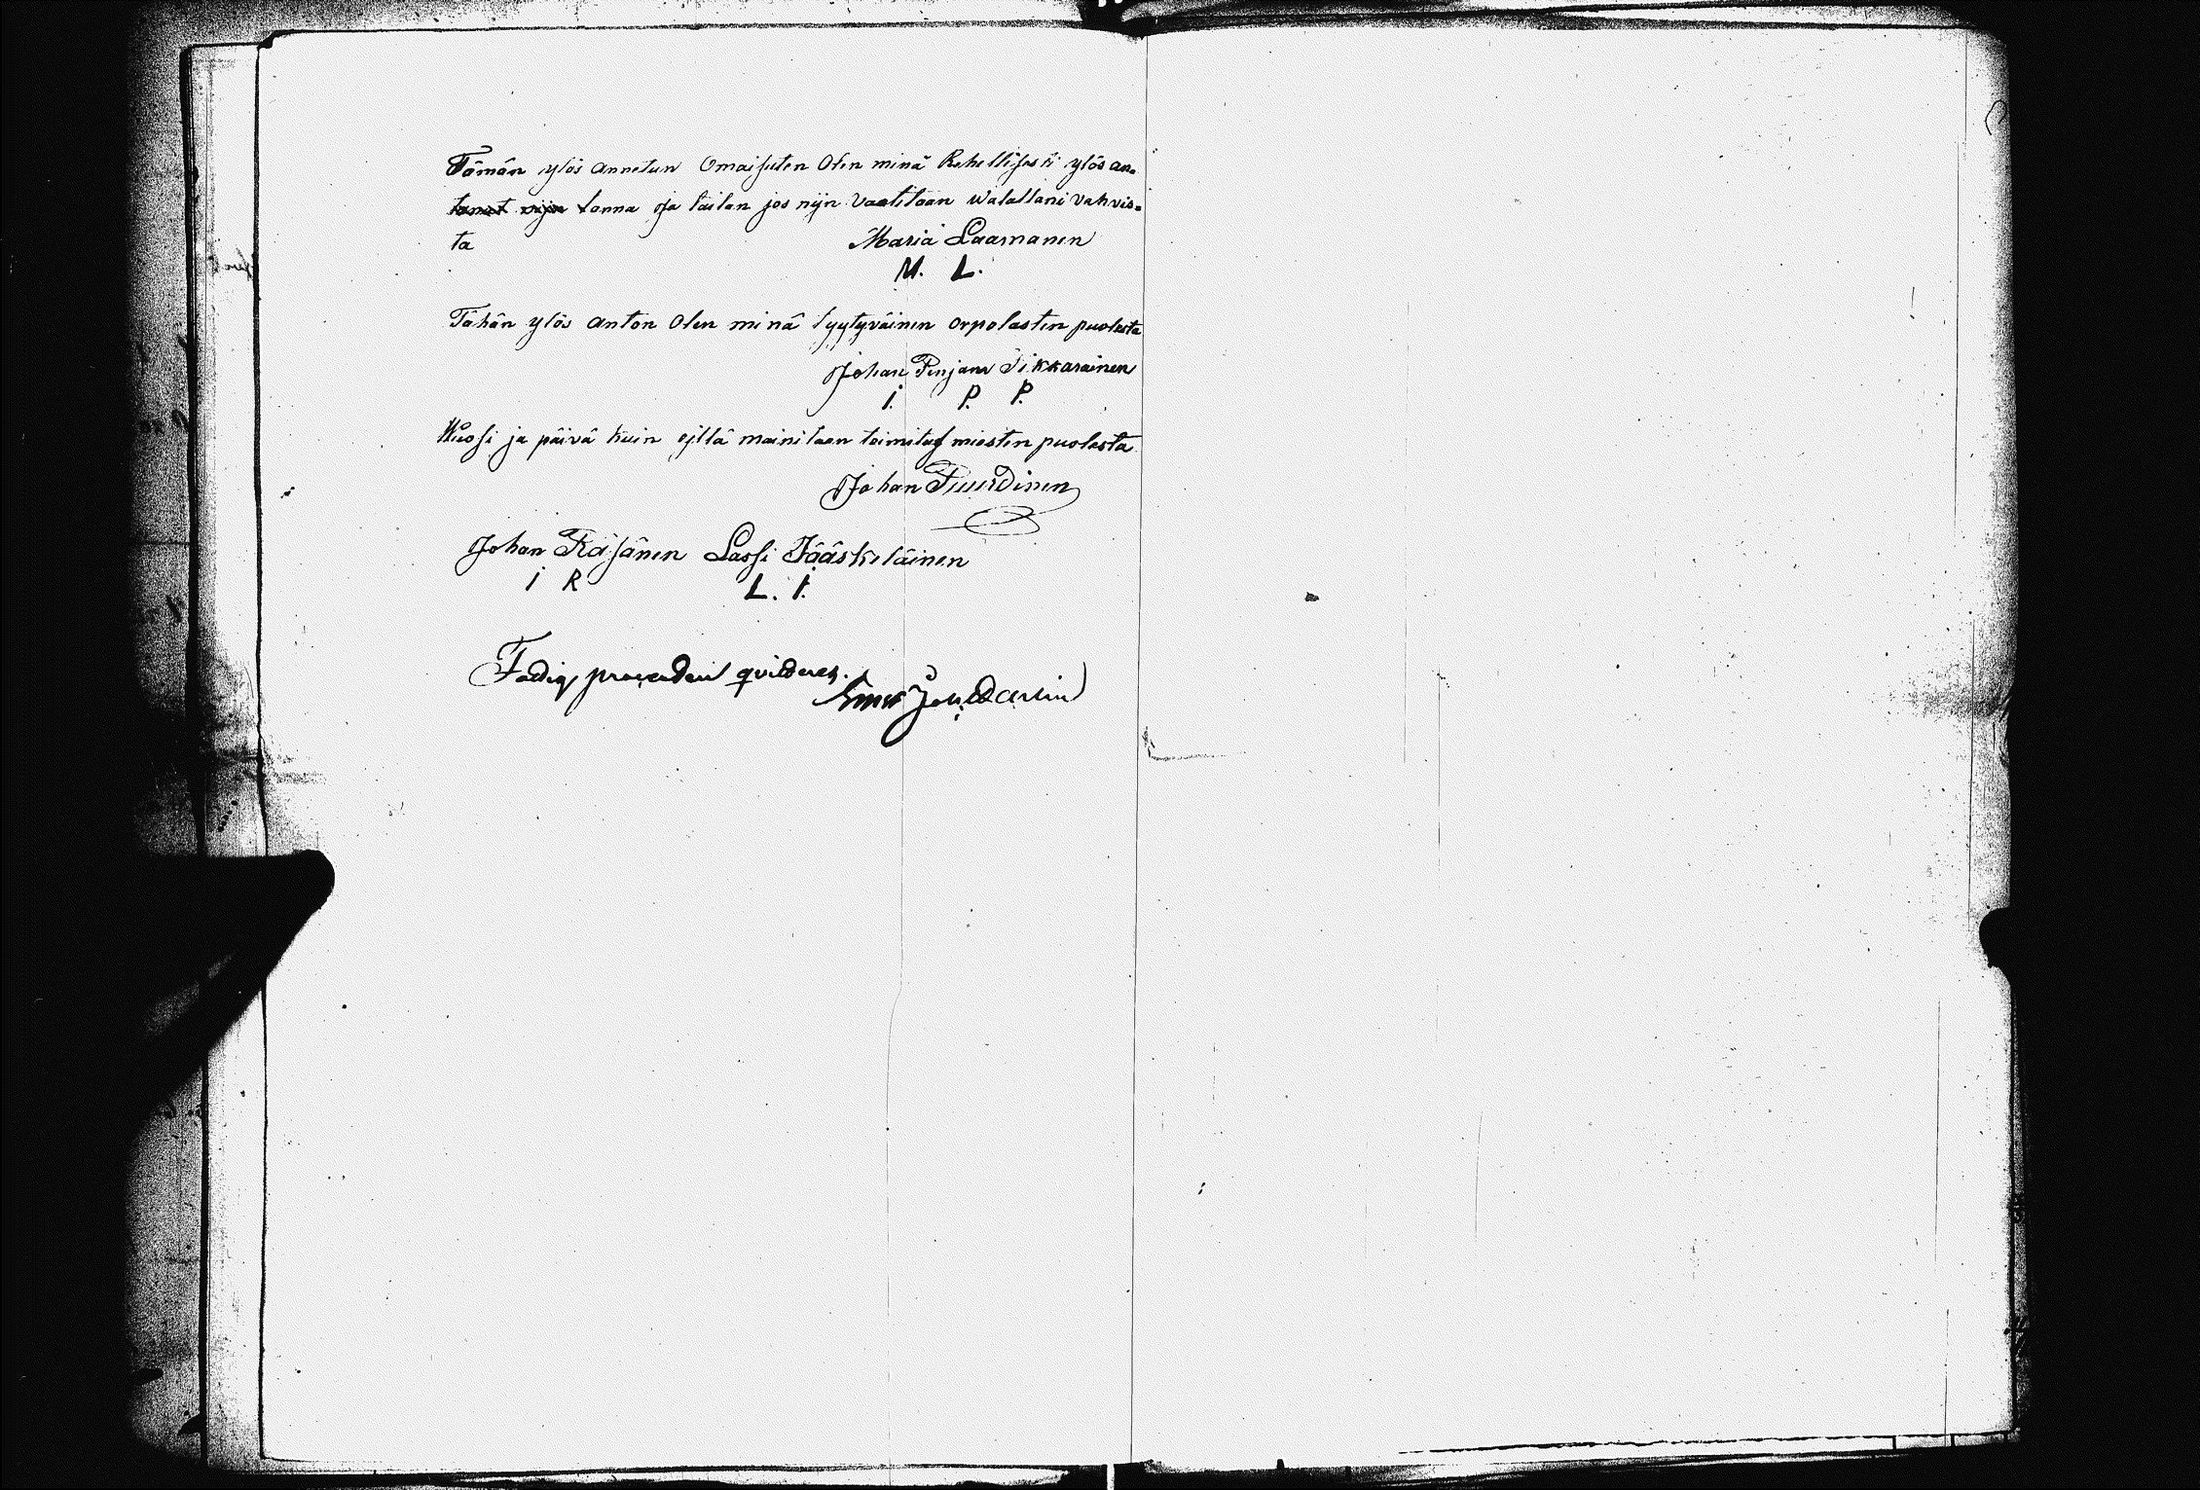 Tämän ylös annetun Omaisuten Olen minä Rehellisesti ylös an-
tanut niin tanna ja taitan jos nijn vaatitaan walallani vahvis-
ta
Maria Laamanen
M. L.
Tähän ylös anton Olen minä tyytyväinen orpolasten puolesta
Johan Penjam Pikkarainen
I. P. P.
Wuosi ja päivä kuin yllä mainitaan toimitus miesten puolesta
Johan Puurdinen
Johan Räisänen Lassi Jääskeläinen
I R L. I.
Fattig procenten qvitteras.